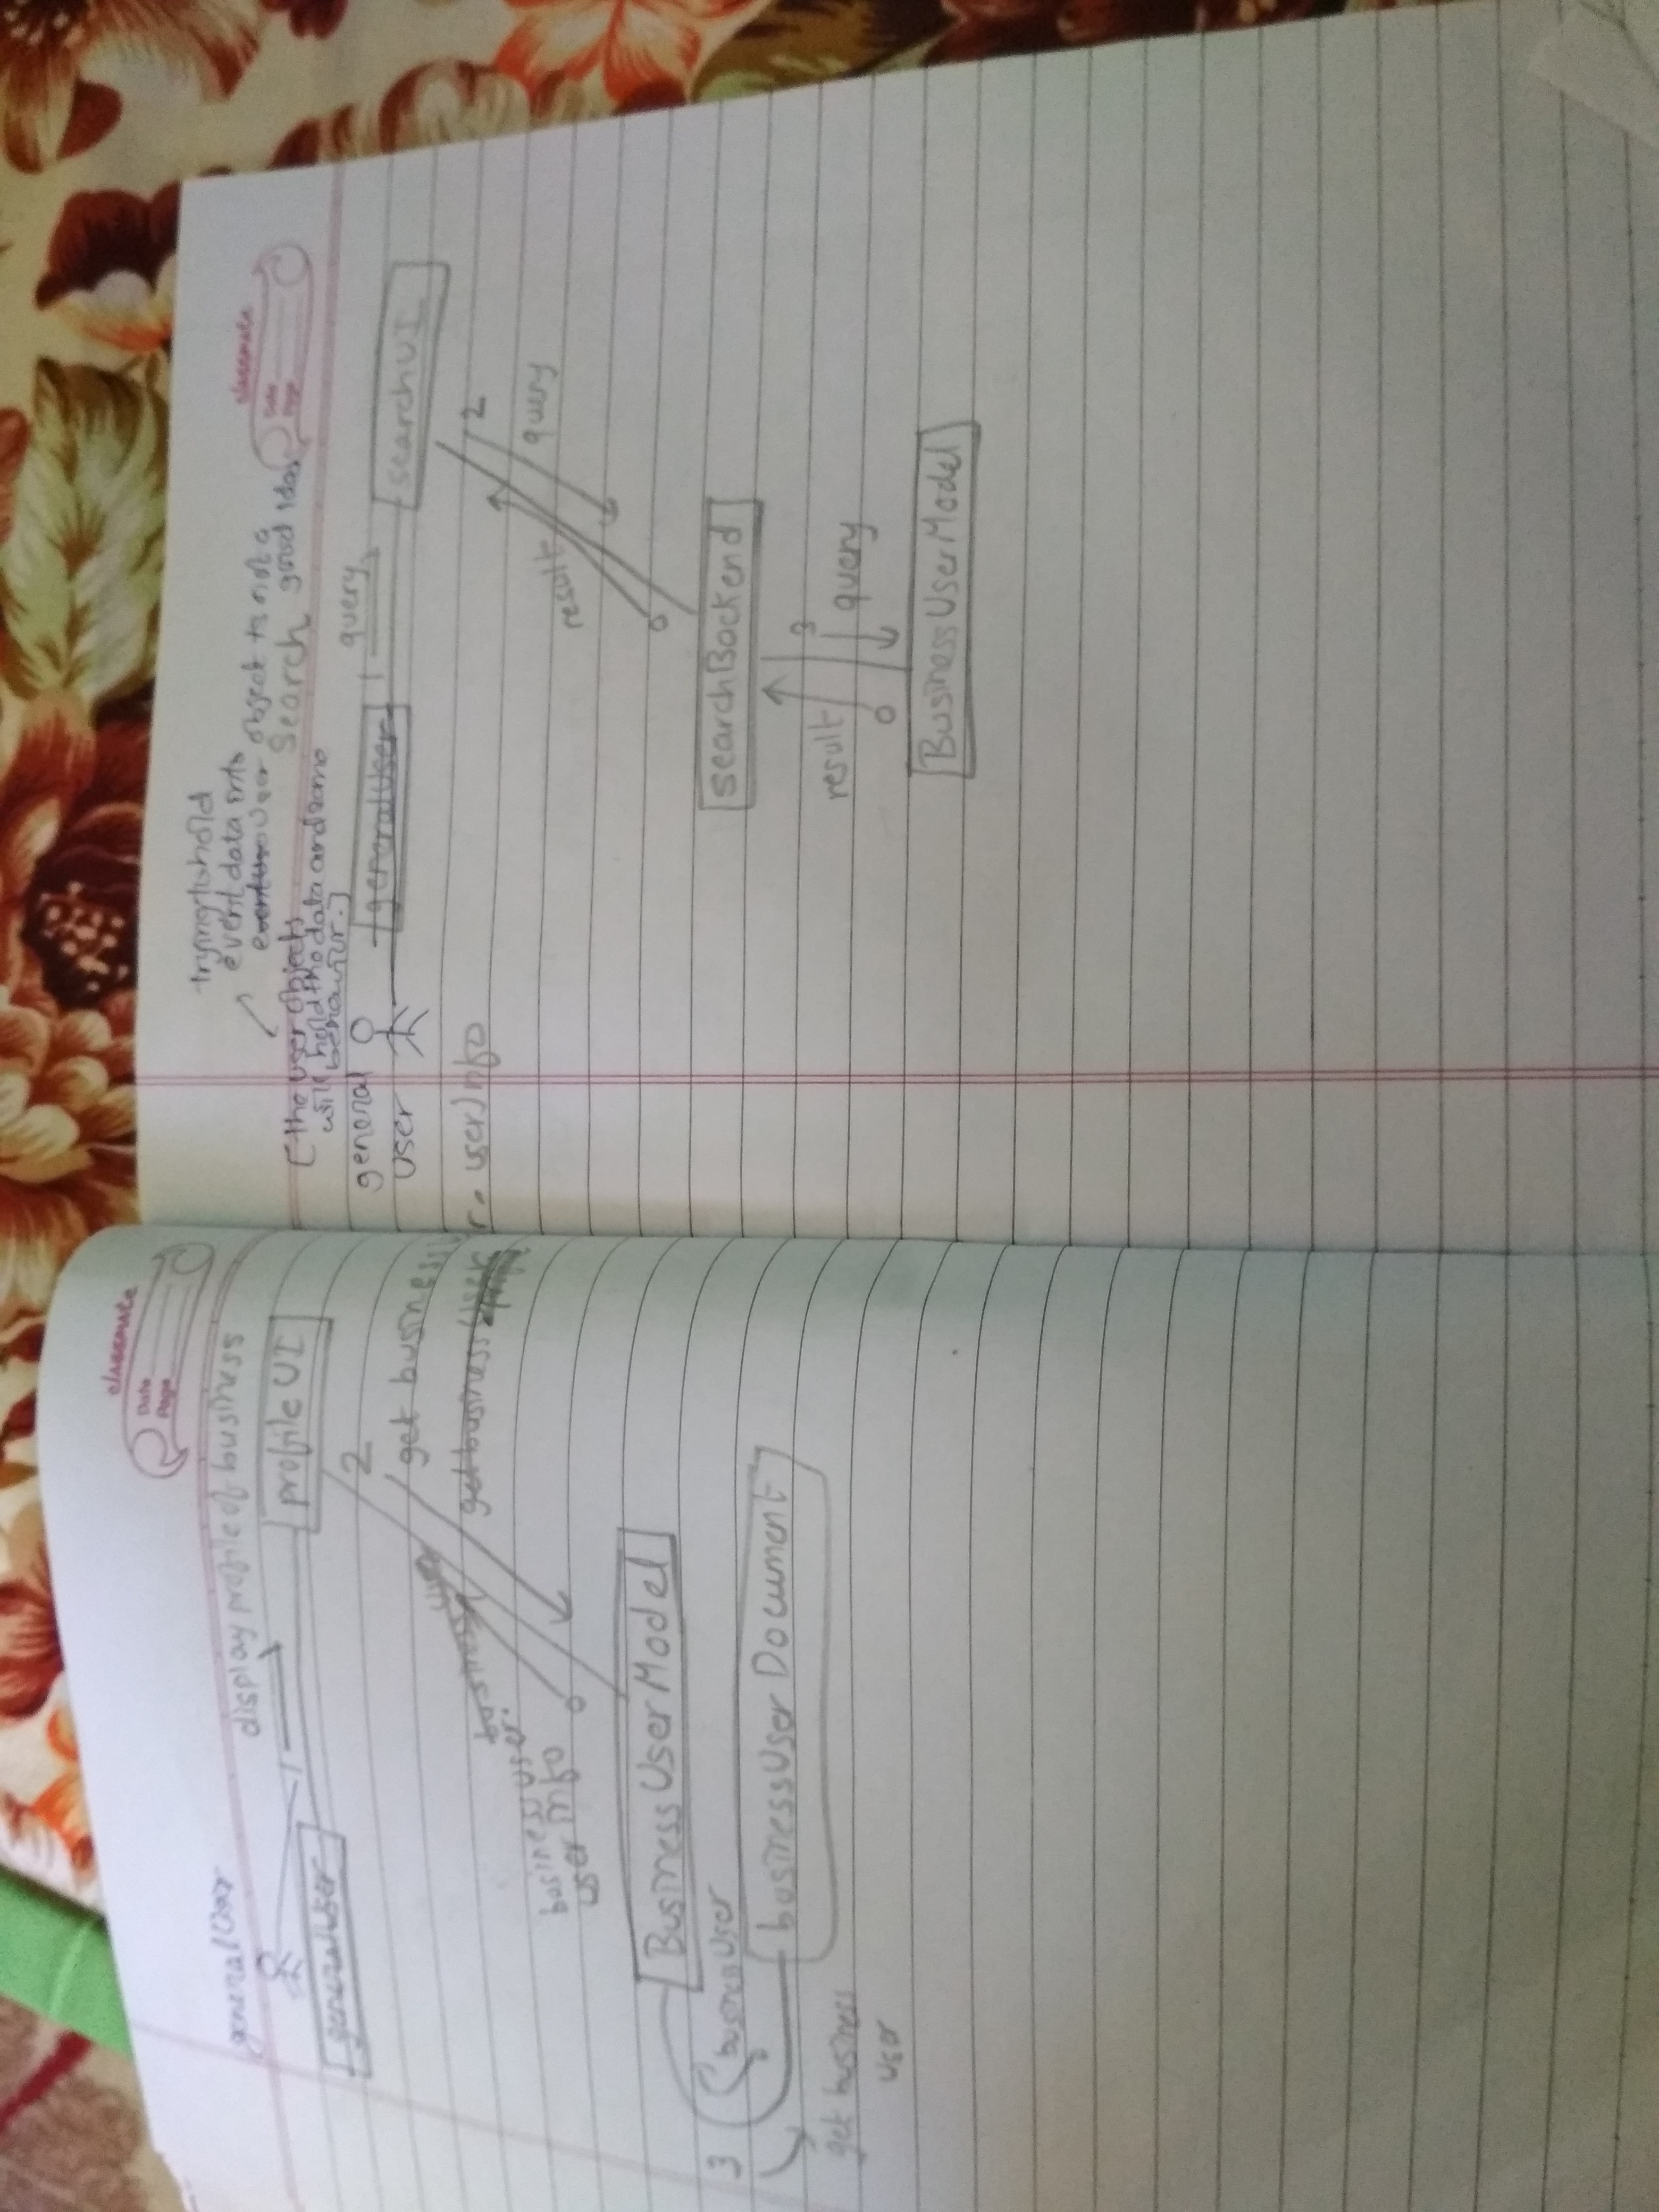 classmate
Date
Page
general User
display profile of business
generalUser
1
profile UI
2
get business user info
get business User
business user
business user.
business
user info
BusinessUserModel
3
businessUser
businessUser Document
get business
user
classmate
Date
Page
trying to hold
event data into
user object is not a
good idea
Search
[the user objects
will hold the data and some
behaviour.]
general
user
generalUser
1
query
searchUI
2
query
result
searchBackend
3
query
result
BusinessUserModel